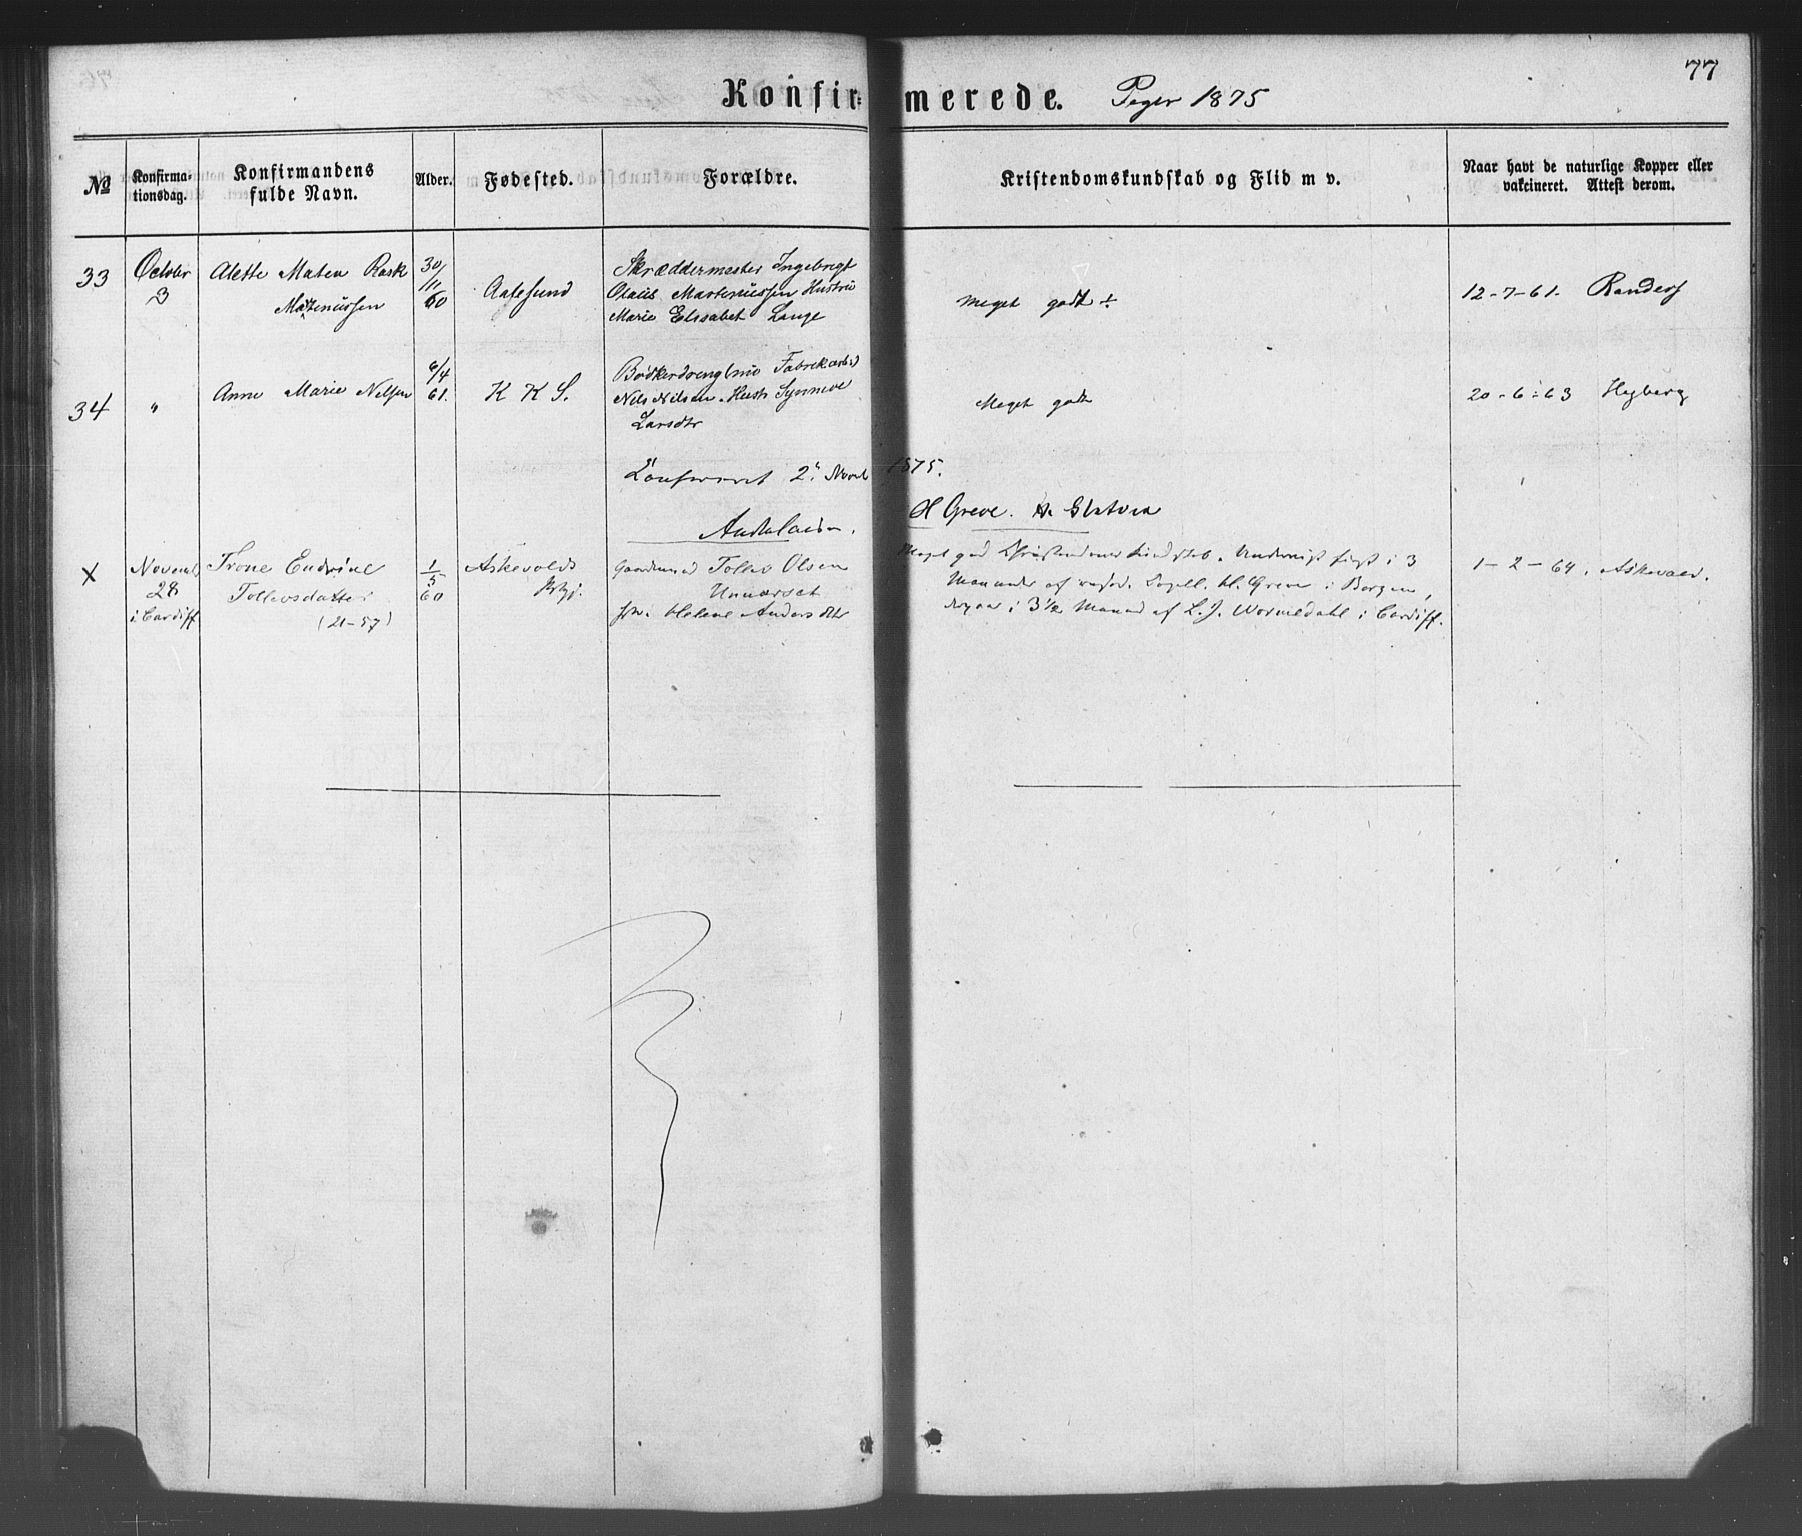 77
Konfirmerede. Piger 1875
No
Konfirma-
tionsdag.
Konfirmandens
fulde Navn.
Alder.
Fødested.
Forældre.
Kristendomskundskab og Flid m v.
Naar havt de naturlige Kopper eller
vakcineret. Attest derom.
33
October
3
Alette Maten Rask
Martenussen
30/
11
60
Aalesund
Skræddermester Ingebrigt
Olaus Martenussen Hustru
Marie Elisabet Lange
Meget godt ÷
12-7-61. Randers
34
"
Anne Marie Nilsen
6/4
61.
K K S.
Fabrikarb
Nils Nilsen Hustr Synneve
Larsdtr
Meget godt
20-6-63 Hegberg
2. Novemb 1875.
H Greve.
X
Novemb
28
i Cardiff
Trone Endrine
Tollevsdatter
(21-57)
1
5
60
Askevolds
Prgj.
Gaardmand Tollev Olsen
Helene Andersdtr
Meget god Christendomskundskab. Undervist først i 3
Maaneder af H. Greve i Bergen,
derpaa i 3 1/2 Maaned af L. J. Wormdahl i Cardiff.
1-2-64. Askevold.